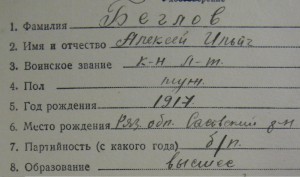 1. Фамилия Беглов
2. Имя и отчество Алексей Ильич
3. Воинское звание к-н л-т.
4. Пол муж.
5. Год рождения 1917
6. Место рождения Ряз. обл. Сасовский р-н
7. Партийность (с какого года) б/п.
8. Образование высшее